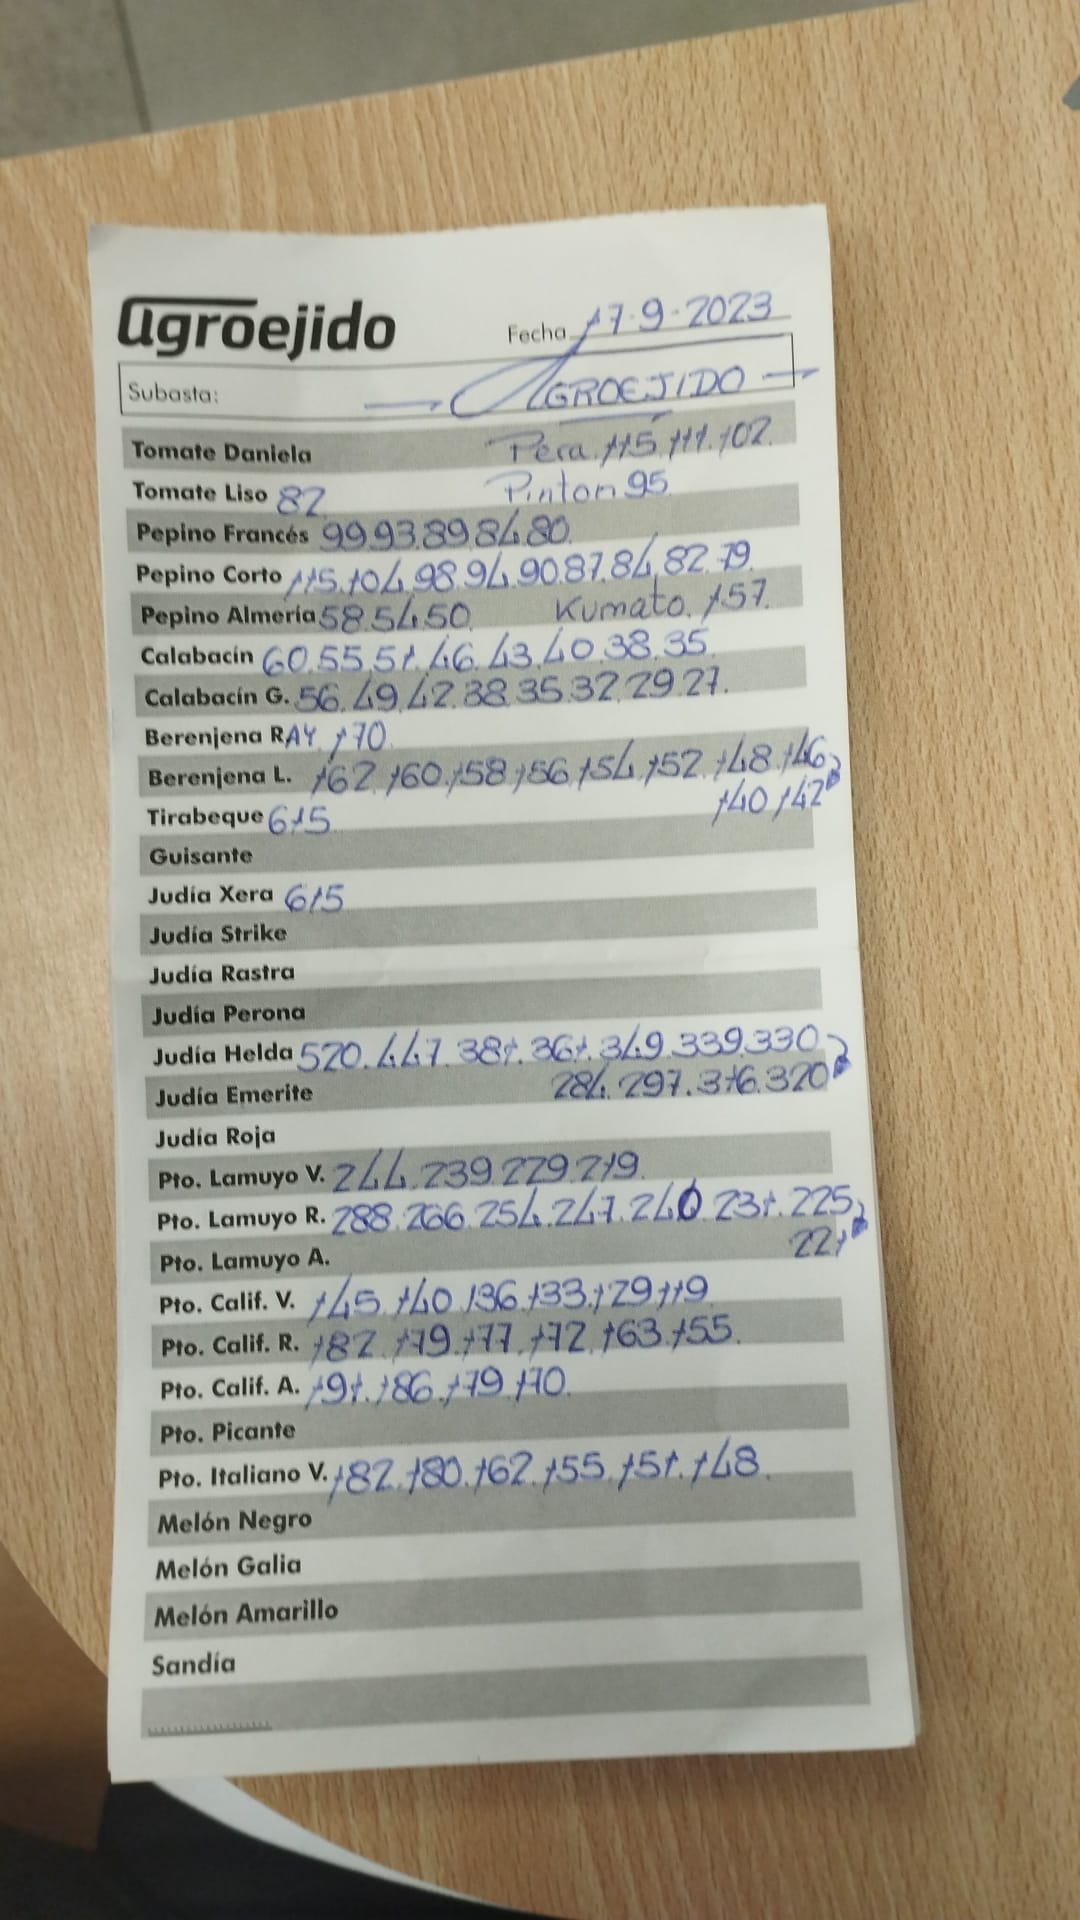 agroejido
Fecha 17-9-2023
Subasta: AGROEJIDO
Tomate Daniela Pera. 115.111.102.
Tomate Liso 82 Pinton 95
Pepino Francés 99.93.89.84.80.
Pepino Corto 115.104.98.94.90.87.84.82.79.
Pepino Almería 58.54.50. Kumato. 157.
Calabacín 60.55.51.46.43.40.38.35.
Calabacín G. 56.49.42.38.35.32.29.27.
Berenjena RAY 170.
Berenjena L. 162.160.158.156.154.152.148.146
140 142
Tirabeque 615
Guisante
Judía Xera 615
Judía Strike
Judía Rastra
Judía Perona
Judía Helda 520.447.381.361.349.339.330
Judía Emerite 284.297.316.320
Judía Roja
Pto. Lamuyo V. 244.239.229.219.
Pto. Lamuyo R. 288.266.254.247.240.231.225
221
Pto. Lamuyo A.
Pto. Calif. V. 145.140.136.133.129.119
Pto. Calif. R. 182.179.177.172.163.155.
Pto. Calif. A. 191.186.179.170.
Pto. Picante
Pto. Italiano V. 182.180.162.155.151.148.
Melón Negro
Melón Galia
Melón Amarillo
Sandía